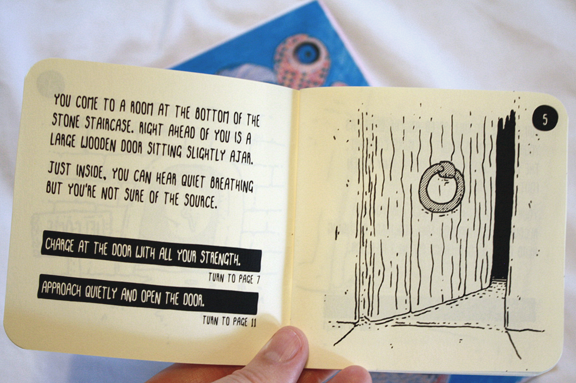 YOU COME TO A ROOM AT THE BOTTOM OF THE
STONE STAIRCASE. RIGHT AHEAD OF YOU IS A
LARGE WOODEN DOOR SITTING SLIGHTLY AJAR.
JUST INSIDE, YOU CAN HEAR QUIET BREATHING
BUT YOU'RE NOT SURE OF THE SOURCE.
CHARGE AT THE DOOR WITH ALL YOUR STRENGTH.
TURN TO PAGE 7
APPROACH QUIETLY AND OPEN THE DOOR.
TURN TO PAGE 11
5